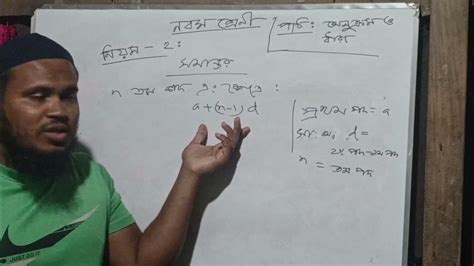 নবম শ্রেণী
পাঠ: অনুক্রম ও
ধারা
নিয়ম - ২:
সমান্তর
n তম পদ এর ক্ষেত্রে:
a+(n-1)d
প্রথম পদ = a
সা: অ, d =
২য় পদ-১ম পদ
n = তম পদ
JUST DO IT